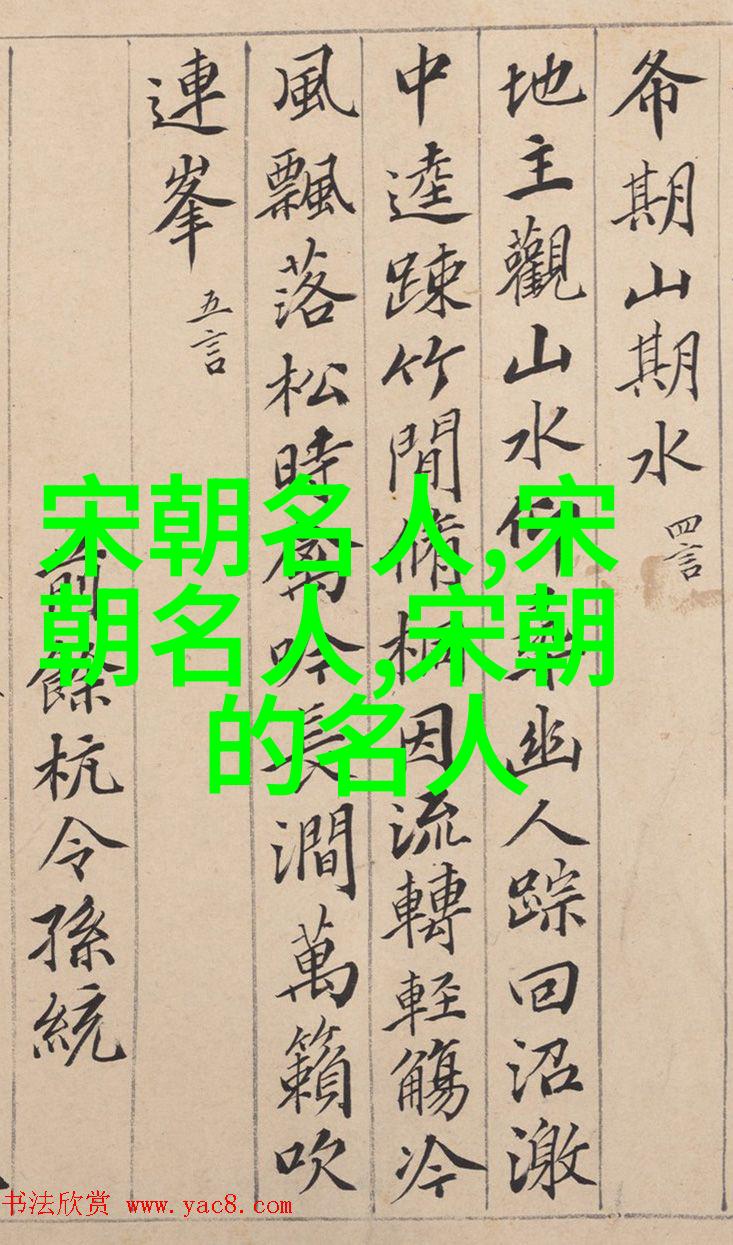 希期山期水 四言
地主觀山水仰尋幽人踪回沼激
中逵踈竹間脩桐因流轉軽觴冷
風飄落松時禽吟長澗萬籟吹
連峯 五言
前餘杭令孫統
宋朝名人,宋
朝名人,宋朝
的名人
书法欣赏 www.yac8.com